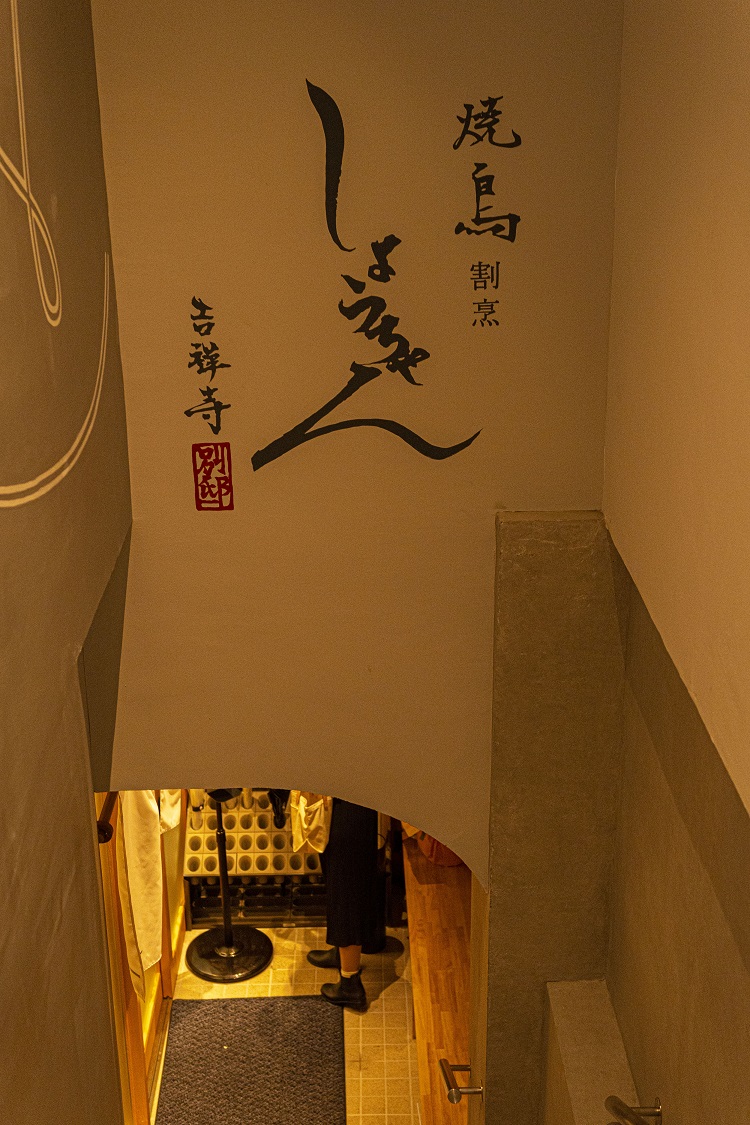 焼鳥
割烹
しょうちゃん
吉祥寺
別邸